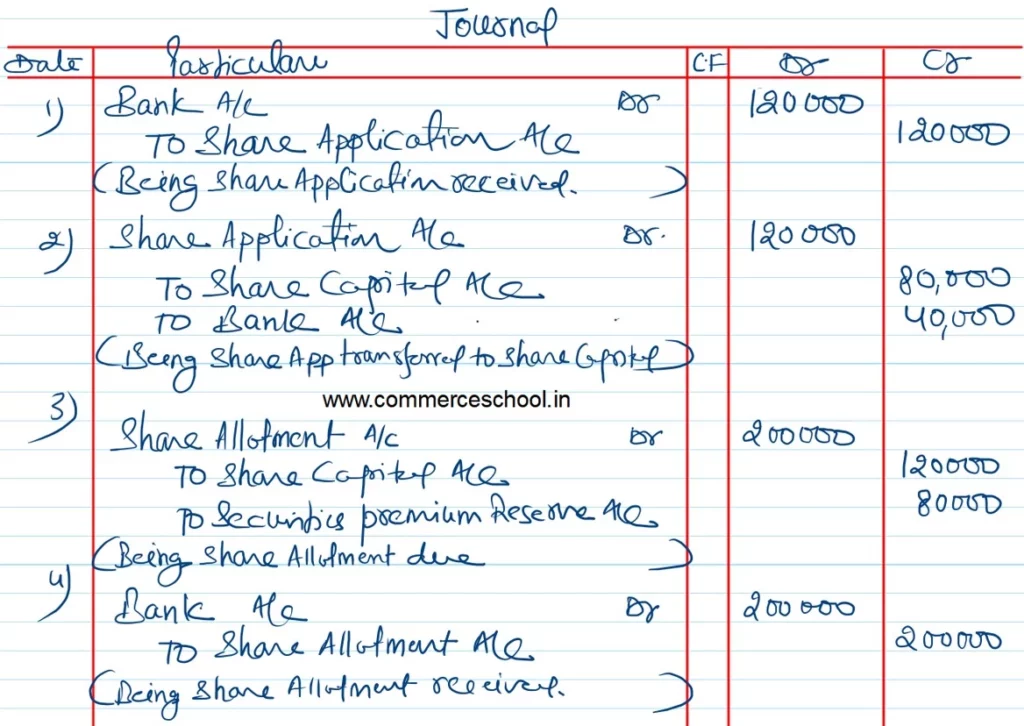 Journal
Date Particulars CF Dr Cr
1) Bank A/c Dr 120000
To Share Application A/c 120000
(Being Share Application received.)
2) Share Application A/c Dr. 120000
To Share Capital A/c 80,000
To Bank A/c 40,000
(Being Share App transferred to Share Capital)
www.commerceschool.in
3) Share Allotment A/c Dr 200000
To Share Capital A/c 120000
To Securities premium Reserve A/c 80000
(Being Share Allotment due)
4) Bank A/c Dr 200000
To Share Allotment A/c 200000
(Being Share Allotment received.)